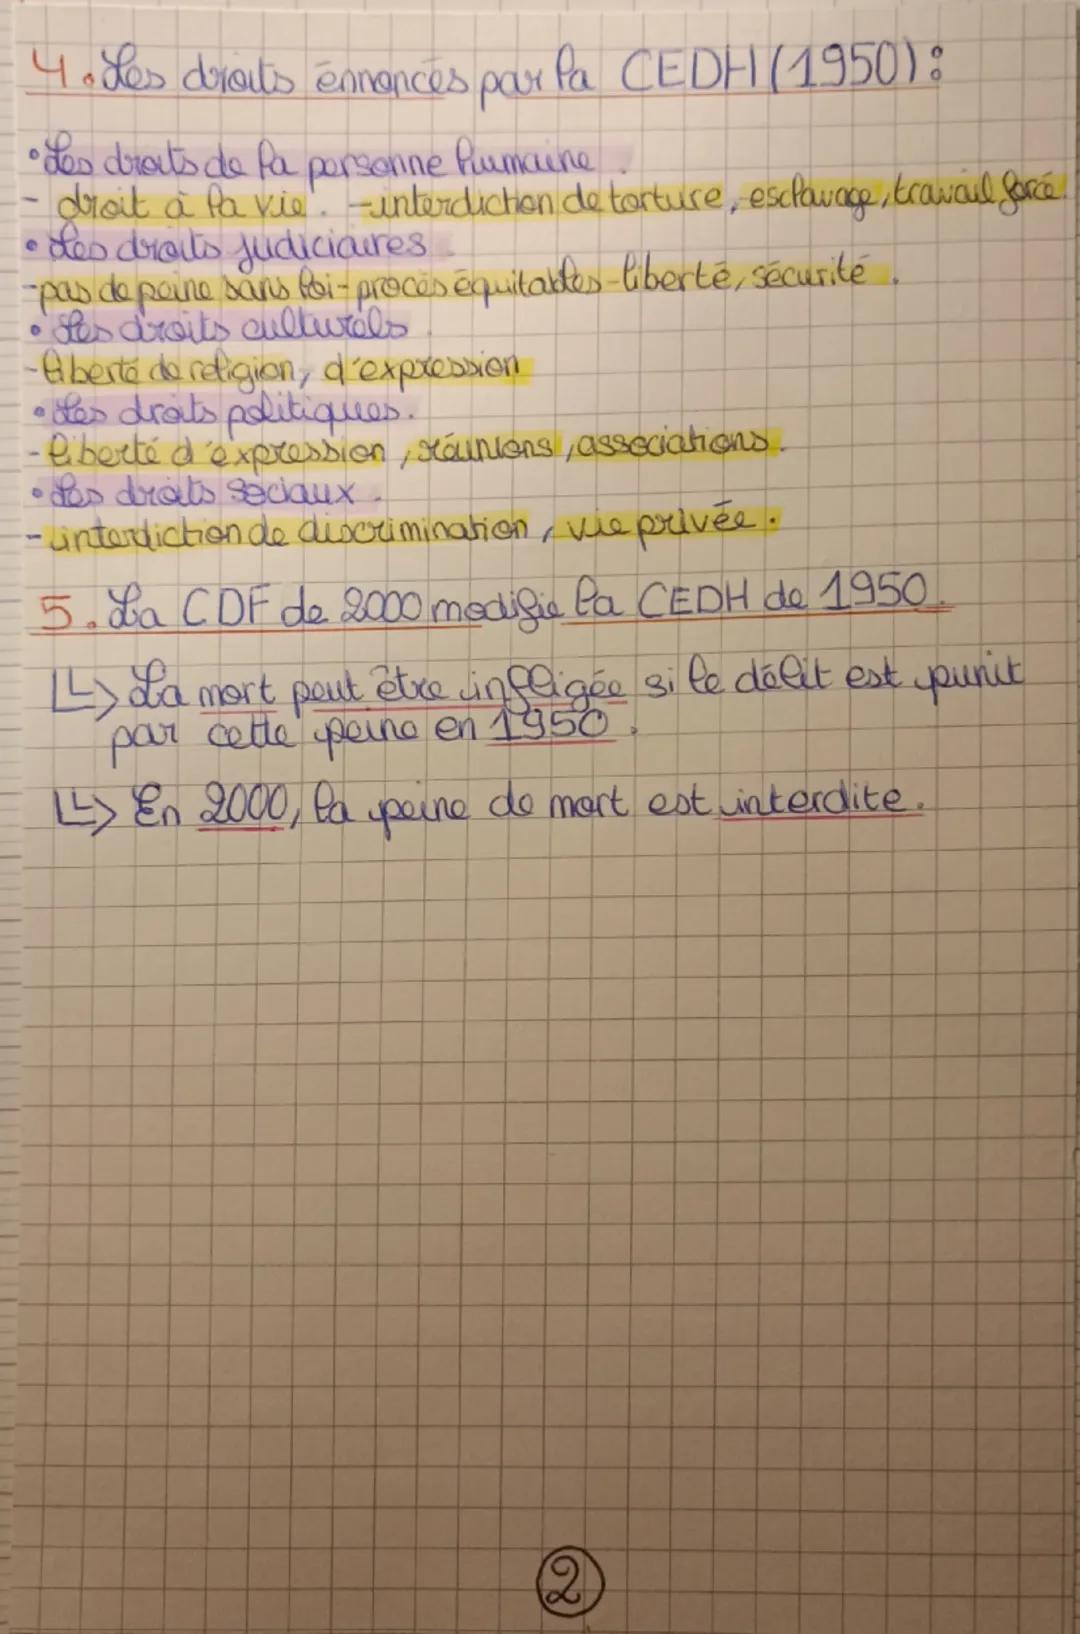 4. Les droits énnoncés par la CEDH (1950) :
• Les droits de la personne humaine.
- droit à la vie. - interdiction de torture, esclavage, travail forcé.
• Les droits judiciaires.
- pas de peine sans loi - procès équitables - liberté, sécurité.
• Les droits culturels.
- liberté de religion, d'expression
• Les droits politiques.
- liberté d'expression, réunions, associations.
• Les droits sociaux.
- interdiction de discrimination, vie privée.
5. La CDF de 2000 modifie la CEDH de 1950.
↳ La mort peut être infligée si le délit est punit
par cette peine en 1950.
↳ En 2000, la peine de mort est interdite.
2